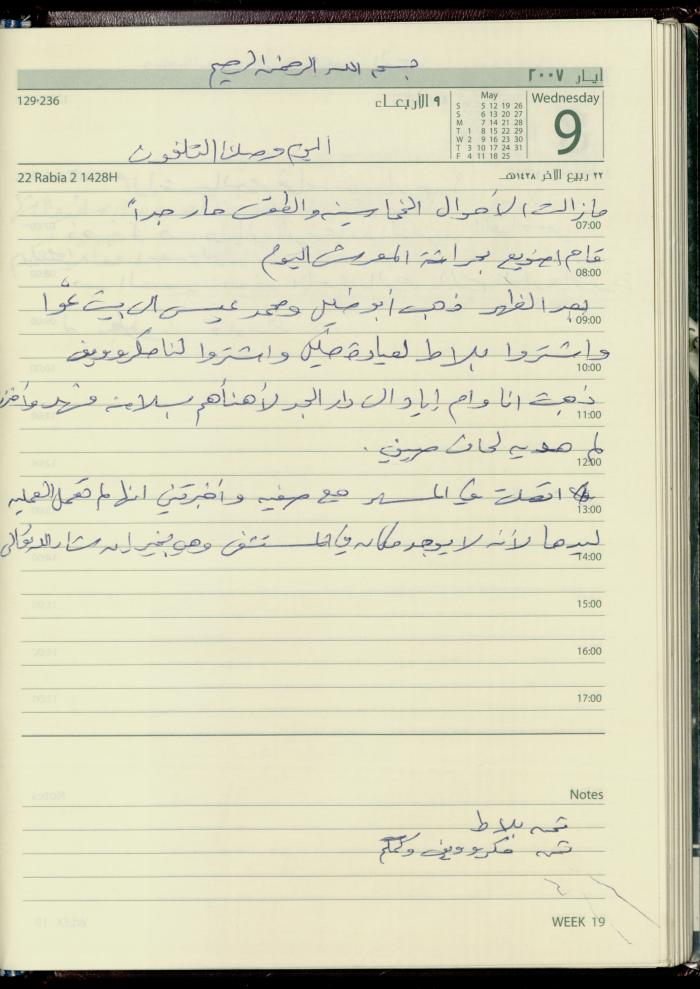 بسم الله الرحمن الرحيم
أيـار ٢٠٠٧
129-236
٩ الأربـعـاء
May
Wednesday
S 5 12 19 26
S 6 13 20 27
M 7 14 21 28
T 1 8 15 22 29
W 2 9 16 23 30
T 3 10 17 24 31
F 4 11 18 25
9
اليوم وصلنا التلفون
22 Rabia 2 1428H
٢٢ ربيع الآخر ١٤٢٨هـ
مازالت الأحوال الخماسينية والطقس حار جداً
07:00
قام بحراثة المعرش اليوم
08:00
بعد الظهر ذهب أبو خليل ومحمد عيسى الى بيت
09:00
واشتروا بلاط لعيادة خليل واشتروا لنا مكروويف
10:00
ذهبت انا وام إياد الى دار لأهنأهم بسلامة
11:00
لهم هديه
12:00
اتصلت في المساء مع صفيه وأخبرتني انها لم تعمل العمليه
13:00
ليدها لأنه لا يوجد مكان في المستشفى وهو بخير ان شاء الله تعالى
14:00
15:00
16:00
17:00
Notes
ثمن بلاط
ثمن مكروويف
WEEK 19